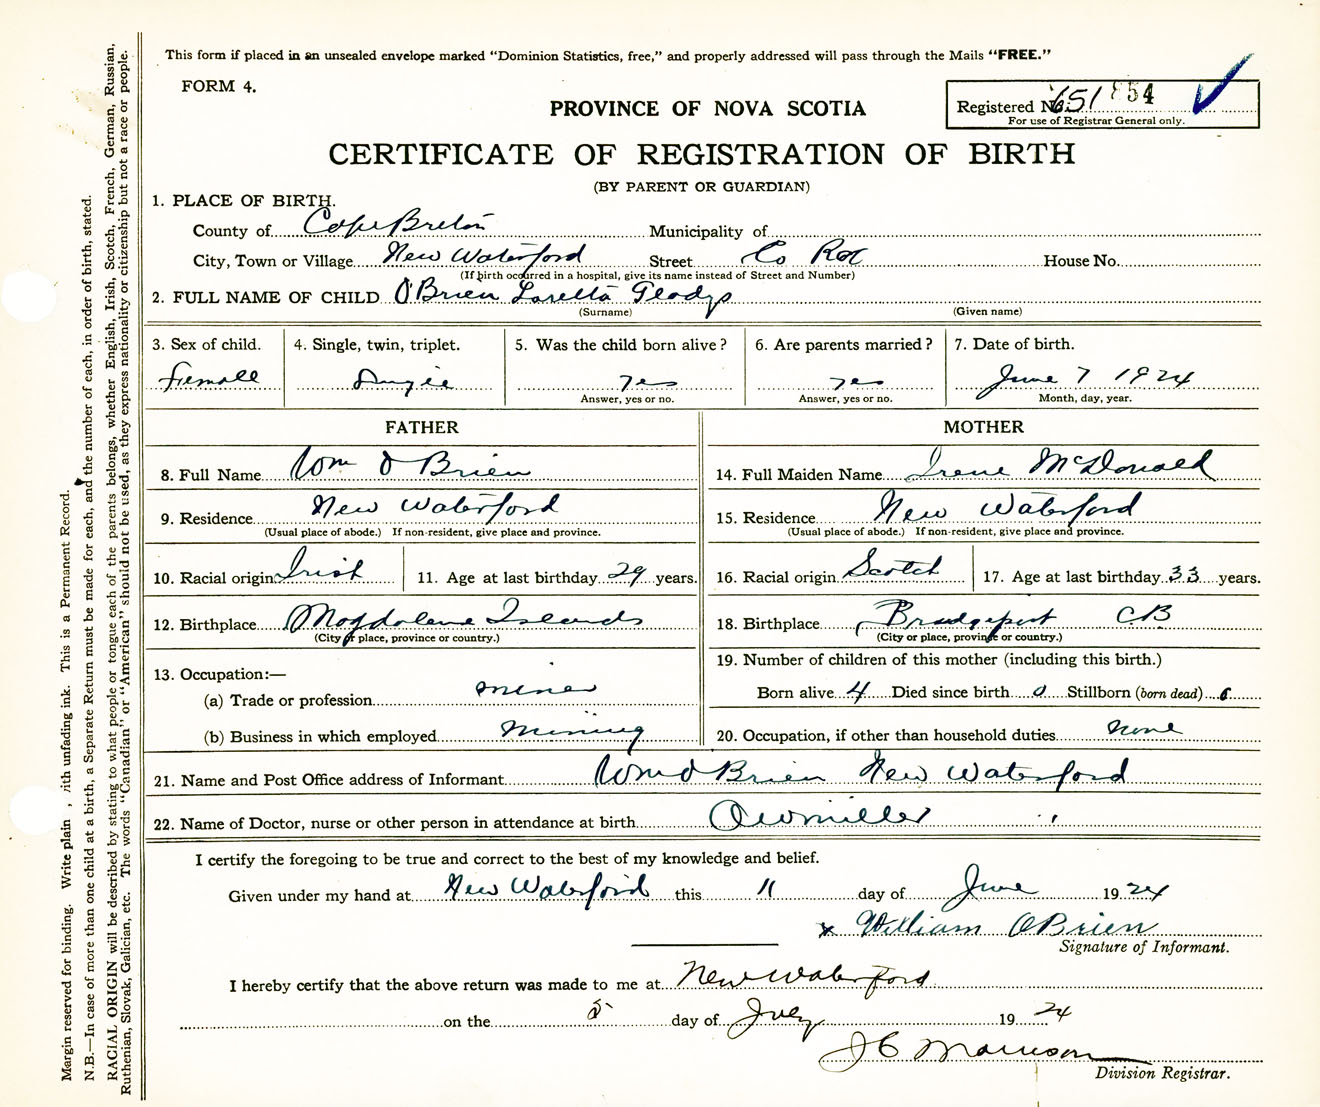 This form if placed in an unsealed envelope marked "Dominion Statistics, free," and properly addressed will pass through the Mails "FREE."
FORM 4.
PROVINCE OF NOVA SCOTIA
Registered No. 651 854
For use of Registrar General only.
CERTIFICATE OF REGISTRATION OF BIRTH
(BY PARENT OR GUARDIAN)
1. PLACE OF BIRTH.
County of Cape Breton Municipality of
City, Town or Village New Waterford Street Co Row House No.
(If birth occurred in a hospital, give its name instead of Street and Number)
2. FULL NAME OF CHILD O'Brien Loretta Gladys
(Surname) (Given name)
3. Sex of child. 4. Single, twin, triplet. 5. Was the child born alive? 6. Are parents married? 7. Date of birth.
Female Single yes yes June 7 1924
Answer, yes or no. Answer, yes or no. Month, day, year.
FATHER MOTHER
8. Full Name Wm O Brien 14. Full Maiden Name Irene McDonald
9. Residence New Waterford 15. Residence New Waterford
(Usual place of abode.) If non-resident, give place and province. (Usual place of abode.) If non-resident, give place and province.
10. Racial origin Irish 11. Age at last birthday 29 years. 16. Racial origin Scotch 17. Age at last birthday 33 years.
12. Birthplace Magdalene Islands 18. Birthplace Bridgeport CB
(City or place, province or country.) (City or place, province or country.)
13. Occupation:— 19. Number of children of this mother (including this birth.)
(a) Trade or profession miner Born alive 4 Died since birth 0 Stillborn (born dead) 0
(b) Business in which employed Mining 20. Occupation, if other than household duties none
21. Name and Post Office address of Informant Wm O Brien New Waterford
22. Name of Doctor, nurse or other person in attendance at birth miller
I certify the foregoing to be true and correct to the best of my knowledge and belief.
Given under my hand at New Waterford this 11 day of June 1924
x William OBrien
Signature of Informant.
I hereby certify that the above return was made to me at New Waterford
on the 5 day of July 1924
J C Morrison
Division Registrar.
Margin reserved for binding. Write plain, with unfading ink. This is a Permanent Record.
N.B.—In case of more than one child at a birth, a Separate Return must be made for each, and the number of each, in order of birth, stated.
RACIAL ORIGIN will be described by stating to what people or tongue each of the parents belongs, whether English, Irish, Scotch, French, German, Russian,
Ruthenian, Slovak, Galician, etc. The words "Canadian" or "American" should not be used, as they express nationality or citizenship but not a race or people.